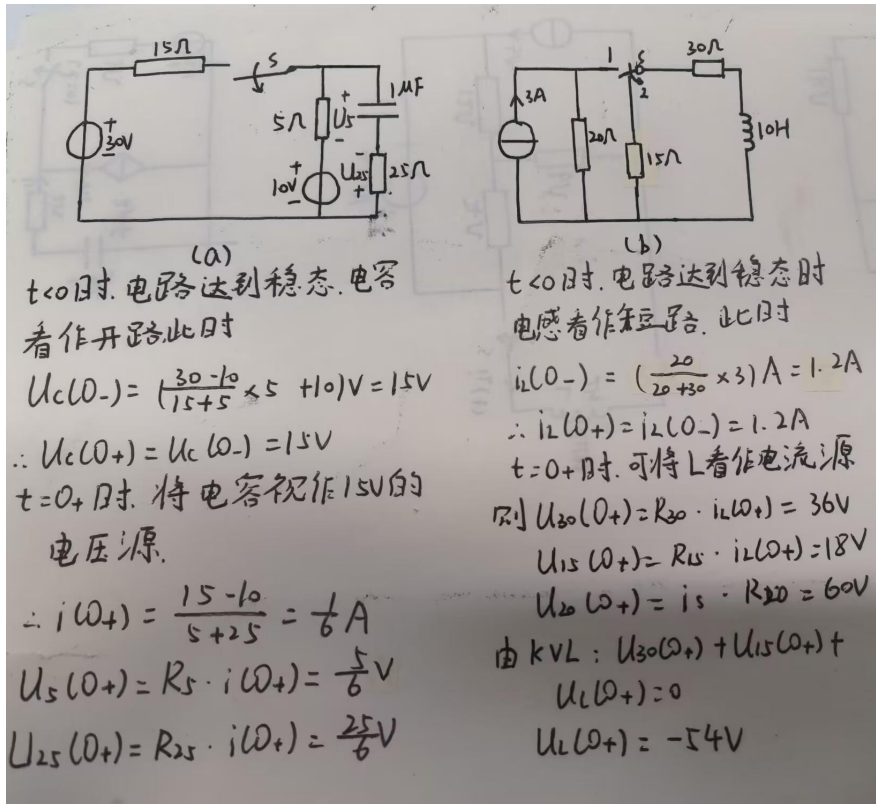 15Ω
S
30V
5Ω
U5
1μF
10V
U25
25Ω
(a)
t<0时.电路达到稳态.电容
看作开路此时
Uc(0-)=(30-10/15+5×5+10)V=15V
∴Uc(0+)=Uc(0-)=15V
t=0+时.将电容视作15V的
电压源.
∴i(0+)=15-10/5+25=1/6A
U5(0+)=R5·i(0+)=5/6V
U25(0+)=R25·i(0+)=25/6V
3A
20Ω
1
S
2
15Ω
30Ω
10H
(b)
t<0时.电路达到稳态时
电感看作短路.此时
iL(0-)=(20/20+30×3)A=1.2A
∴iL(0+)=iL(0-)=1.2A
t=0+时.可将L看作电流源
则U30(0+)=R30·iL(0+)=36V
U15(0+)=R15·iL(0+)=18V
U20(0+)=is·R20=60V
由KVL:U30(0+)+U15(0+)+
UL(0+)=0
UL(0+)=-54V